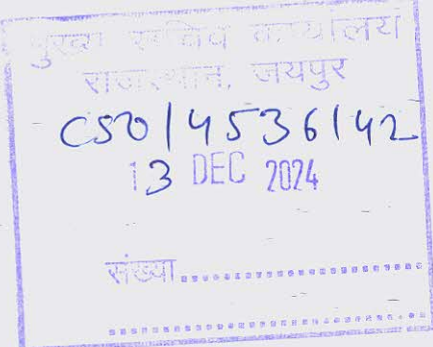 मुख्य सचिव कार्यालय
राजस्थान, जयपुर
CSO/4536/42
13 DEC 2024
संख्या....................
....................